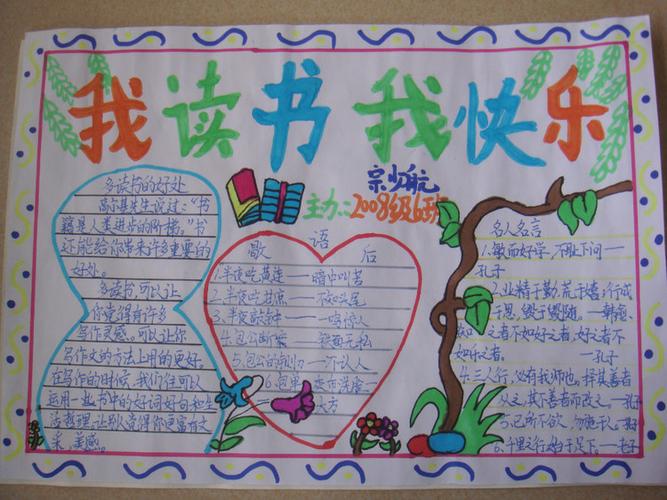 我读书 我快乐
宗少航
主办:2008级6班
多读书的好处
高尔基先生说过:“书
籍是人类进步的阶梯。”书
还能给你带来许多重要的
好处。
多读书,可以让
你觉得有许多
写作灵感。可以让你
写作文的方法上用的更好。
在写作的时候,我们往可以
运用一些书中的好词好句和生
活哲理,让别人觉得你更富有文
采,美感。
歇语后
1.半夜吃黄连——暗中叫苦
2.半夜吃甘蔗——不知头尾
3.半夜敲钟——一鸣惊人
4.包公断案——铁面无私
5.包公的铡刀——不认人
6.
名人名言
1.敏而好学,不耻下问——
孔子
2.业精于勤,荒于嬉;行成
于思,毁于随。——韩愈
知之者不如好之者,好之者不
如乐之者。——孔子
4.三人行,必有我师也。择其善者
从之,其不善者而改之。—孔子
5.己所不欲,勿施于人。—孔子
6.千里之行,始于足下。—老子